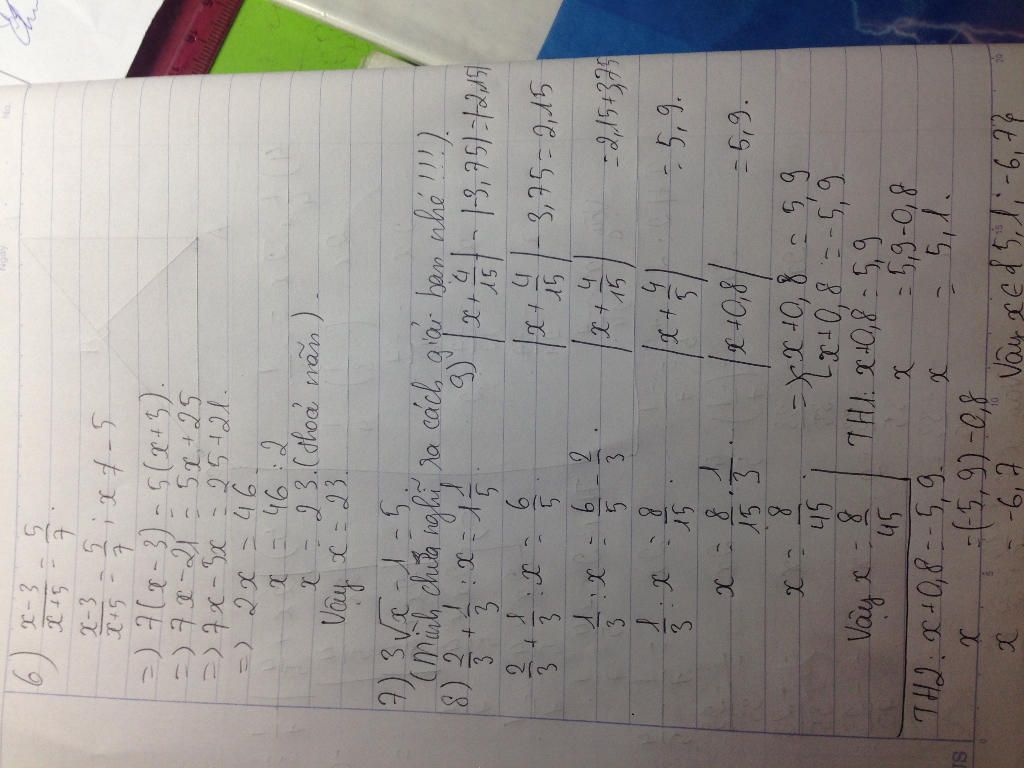 6) x-3/x+5 = 5/7.
x-3/x+5 = 5/7 ; x ≠ -5
=) 7(x-3) = 5(x+5).
=) 7x-21 = 5x+25
=) 7x-5x = 25+21.
=) 2x = 46.
x = 46:2
x = 23. (thoả mãn).
Vậy x = 23.
7) 3√x - 1 = 5.
(mình chưa nghĩ ra cách giải bạn nhé !!!).
8) 2/3 + 1/3 : x = 1 1/5.
2/3 + 1/3 : x = 6/5
1/3 : x = 6/5 - 2/3.
1/3 : x = 8/15
x = 8/15 . 1/3.
x = 8/45.
Vậy x = 8/45
9) |x+4/15| - |3,75| = -|-2,15|
|x+4/15| - 3,75 = 2,15
|x+4/15| = 2,15+3,75
|x+4/5| = 5,9.
|x+0,8| = 5,9.
=) {x+0,8 = 5,9
{x+0,8 = -5,9
TH1: x+0,8 = 5,9
x = 5,9-0,8
x = 5,1.
TH2: x+0,8 = -5,9.
x = (-5,9)-0,8
x = -6,7
Vậy x∈{5,1; -6,7}